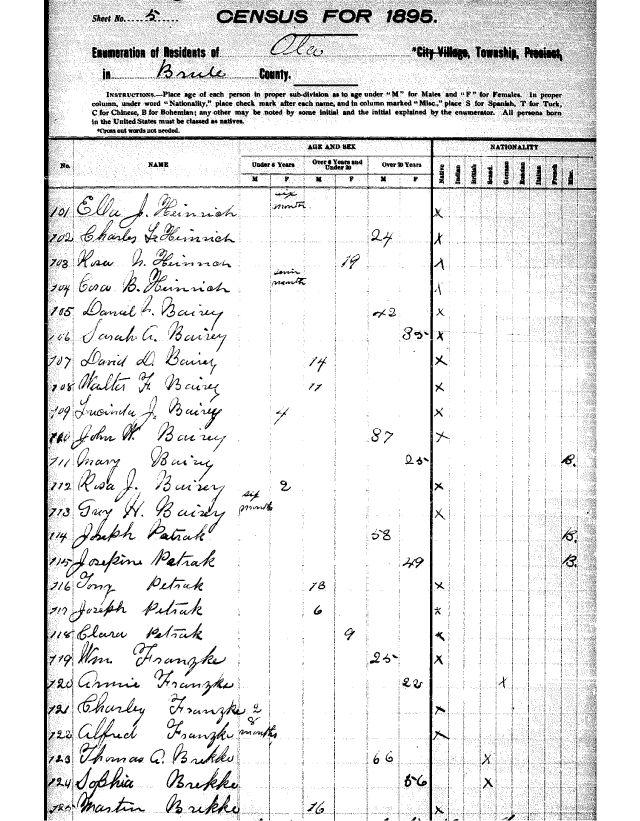 Sheet No. 5
CENSUS FOR 1895.
Enumeration of Residents of Ola *City Village, Township, Precinct,
in Brule County.
INSTRUCTIONS.—Place age of each person in proper sub-division as to age under "M" for Males and "F" for Females. In proper
column, under word "Nationality," place check mark after each name, and in column marked "Misc.," place S for Spanish, T for Turk,
C for Chinese, B for Bohemian; any other may be noted by some initial and the initial explained by the enumerator. All persons born
in the United States must be classed as natives.
*Cross out words not needed.
AGE AND SEX NATIONALITY
No. NAME Under 6 Years Over 6 Years and Under 20 Over 20 Years Native Indian British Scand. German Russian Italian French Misc.
M F M F M F
101 Ella J. Heinrich six month x
102 Charles L. Heinrich 24 x
103 Rosa N. Heinrich 19 x
104 B. Heinrich month x
105 Daniel N. Bairey 42 x
106 Sarah A. Bairey 35 x
107 David D. Bairey 14 x
108 Walter F. Bairey 11 x
109 Lucinda J. Bairey 4 x
110 John W. Bairey 37 x
111 Mary Bairey 25 B.
112 Rosa J. Bairey 2 x
113 Guy H. Bairey six months x
114 Joseph Petrak 58 B.
115 Josepine Petrak 49 B.
116 Tony Petrak 13 x
117 Joseph Petrak 6 x
118 Clara Petrak 9 x
119 Wm Franzke 25 x
120 Annie Franzke 22 x
121 Charley Franzke 2 x
122 Alfred Franzke 8 months x
123 Thomas A. Brekke 66 x
124 Sophia Brekke 56 x
125 Martin Brekke 16 x